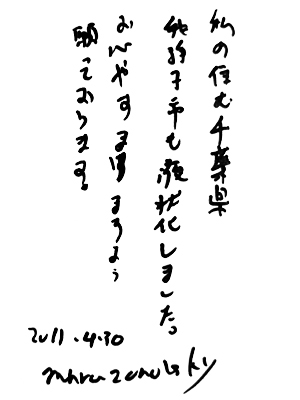 私の住む千葉県
我孫子市も液状化しました。
やすま ますよう
願っております。
2011.4.30